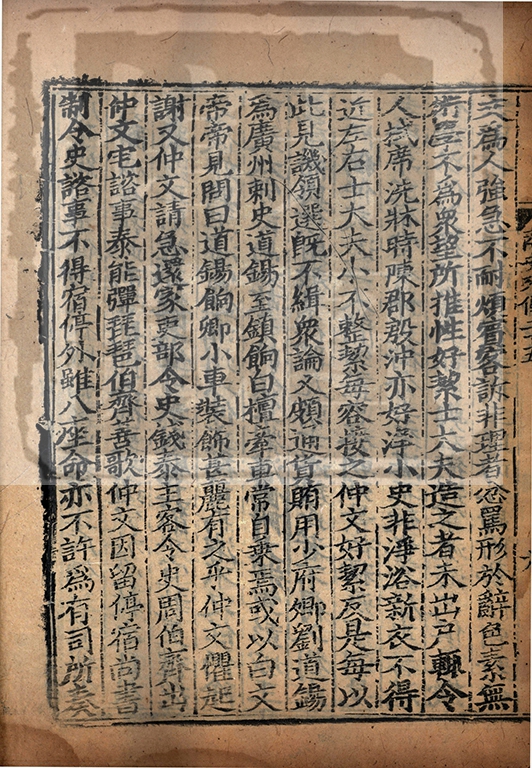 文爲人強急不耐煩賓客訴非理者忿罵形於辭色素無
術學不爲衆望所推性好絜士大夫造之者未出戶輒令
人拭席洗牀時陳郡殷沖亦好淨小史非淨浴新衣不得
近左右士大夫小不整絜每容接之仲文好絜反是每以
此見譏領選既不緝衆論又頗通貨賄用少府卿劉道錫
爲廣州刺史道錫至鎮餉白檀牽車常自乗焉或以白文
帝帝見問曰道錫餉卿小車裝飾甚麗有之乎仲文懼起
謝又仲文請急還家吏部令史錢泰主客令史周伯齊出
仲文宅諮事泰能彈琵琶伯齊善歌仲文因留停宿尚書
制令史諮事不得宿停外雖八座命亦不許爲有司所奏